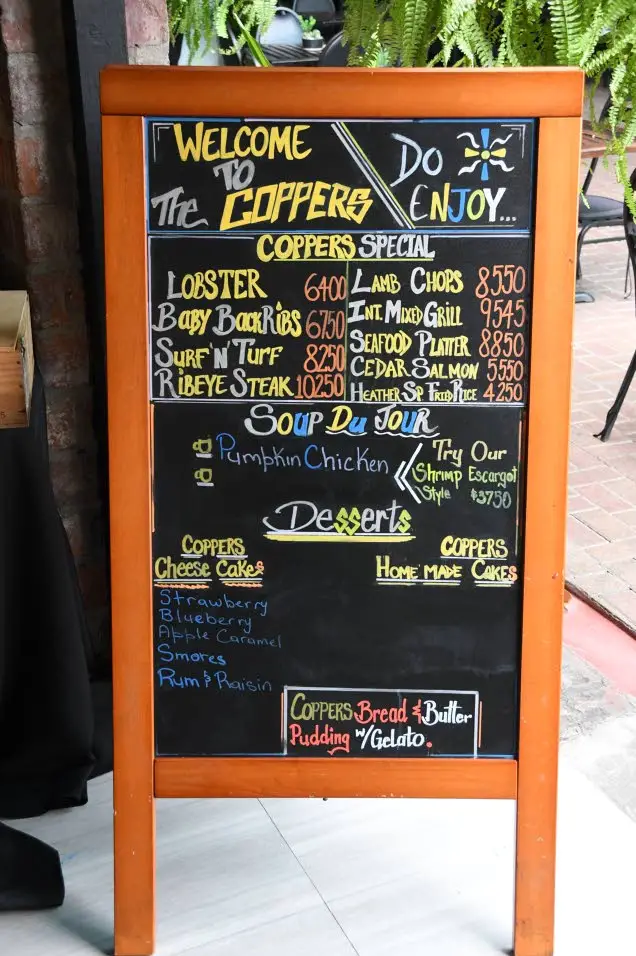 WELCOME
TO
The COPPERS
DO
ENJOY...
COPPERS SPECIAL
LOBSTER 6400
BABY BACK RIBS 6750
SURF 'N' TURF 8250
RIBEYE STEAK 10250
LAMB CHOPS 8550
INT. MIXED GRILL 9545
SEAFOOD PLATTER 8850
CEDAR SALMON 5550
HEATHER SP FRIED RICE 4250
SOUP DU JOUR
Pumpkin Chicken
Try Our
Shrimp Escargot
Style $3750
Desserts
COPPERS
Cheese Cakes
Strawberry
Blueberry
Apple Caramel
Smores
Rum & Raisin
COPPERS
HOME MADE CAKES
COPPERS Bread & Butter
Pudding w/Gelato.